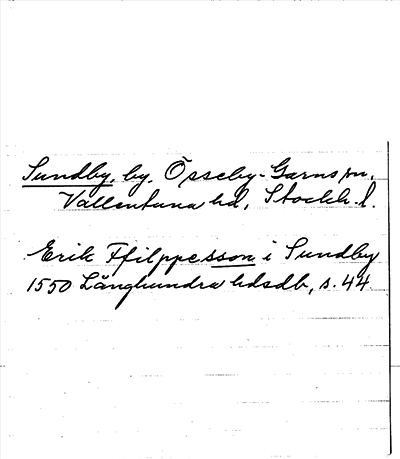 Sundby, by, Össeby-Garns sn,
Vallentuna hd, Stockh. l.
Erik Ffilppesson i Sundby
1550 Långhundra hdsdb, s. 44